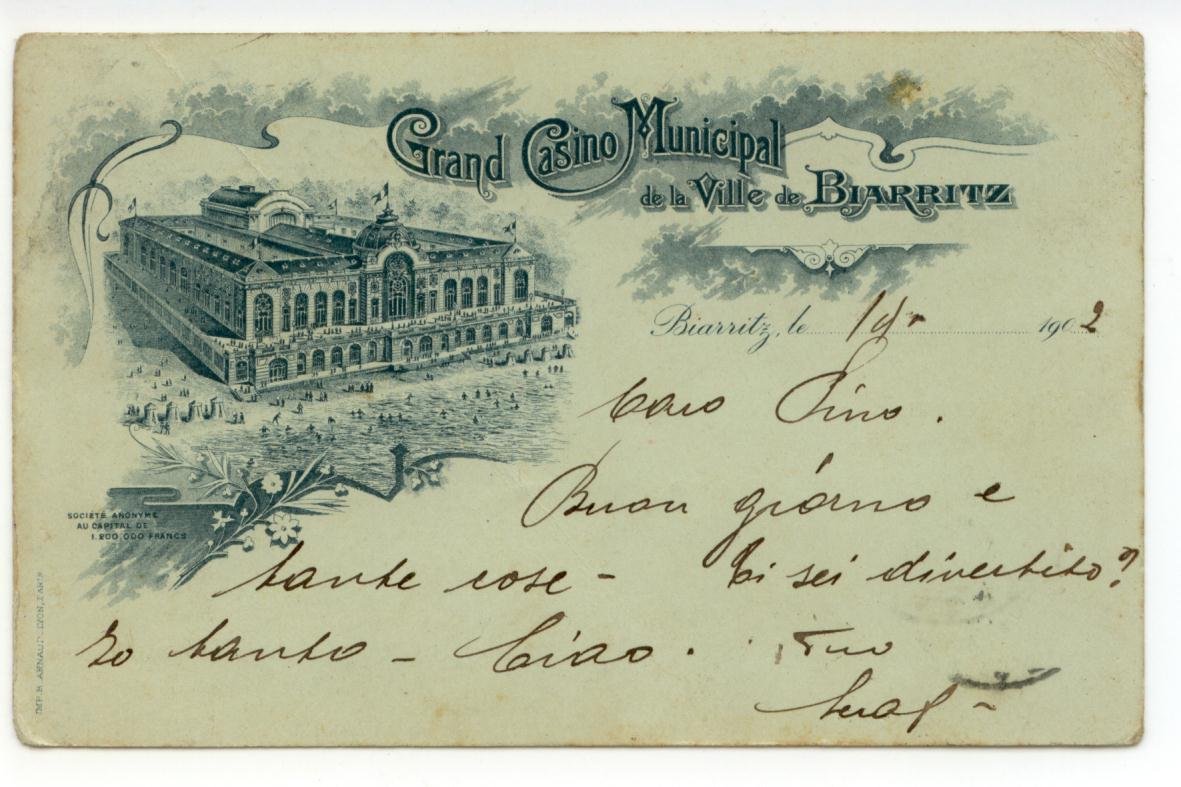 Grand Casino Municipal
de la Ville de BIARRITZ
SOCIÉTÉ ANONYME
AU CAPITAL DE
1.200 000 FRANCS
Biarritz, le 1902
Caro Pino.
Buon giorno e
tante cose - Ti sei divertito?
Io tanto - Ciao. Tuo
IMP. B. ARNAUD, LYON, PARIS